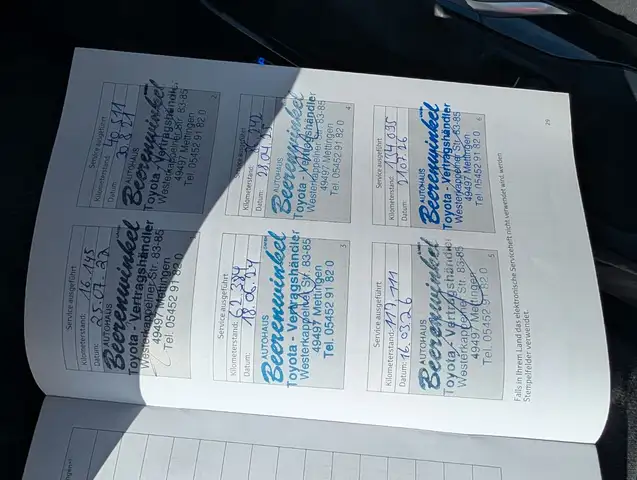 Service ausgeführt
Kilometerstand: 16.145
Datum: 25.07.
AUTOHAUS
Beerenwinkel
Toyota - Vertragshändler
Westerkappelner Str. 83-85
49497 Mettingen
Tel. 05452 91 82 0
Service ausgeführt
Kilometerstand:
Datum:
2
AUTOHAUS
Beerenwinkel
Toyota - Vertragshändler
Westerkappelner Str. 83-85
49497 Mettingen
Tel. 05452 91 82 0
Service ausgeführt
Kilometerstand:
Datum: 18.06.
3
AUTOHAUS
Beerenwinkel
Toyota - Vertragshändler
Westerkappelner Str. 83-85
49497 Mettingen
Tel. 05452 91 82 0
Service ausgeführt
Kilometerstand:
Datum:
4
AUTOHAUS
Beerenwinkel
Toyota - Vertragshändler
Westerkappelner Str. 83-85
49497 Mettingen
Tel. 05452 91 82 0
Service ausgeführt
Kilometerstand:
Datum: 16.03.26
5
AUTOHAUS
Beerenwinkel
Toyota - Vertragshändler
Westerkappelner Str. 83-85
49497 Mettingen
Tel. 05452 91 82 0
Service ausgeführt
Kilometerstand: 134.095
Datum: 21.07.26
6
AUTOHAUS
Beerenwinkel
Toyota - Vertragshändler
Westerkappelner Str. 83-85
49497 Mettingen
Tel. 05452 91 82 0
Falls in Ihrem Land das elektronische Serviceheft nicht verwendet wird, werden
Stempelfelder verwendet.
29